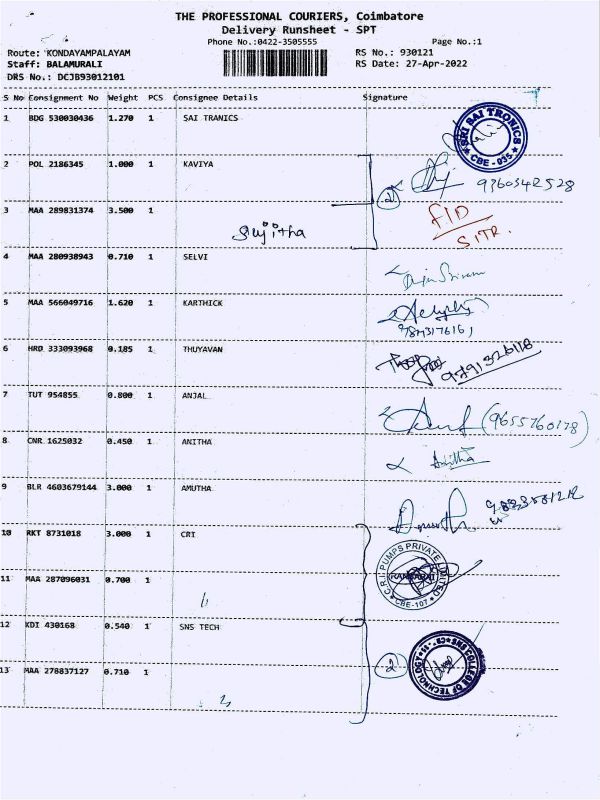 THE PROFESSIONAL COURIERS, Coimbatore
Delivery Runsheet - SPT
Phone No.:0422-3505555 Page No.:1
Route: KONDAYAMPALAYAM RS No.: 930121
Staff: BALAMURALI RS Date: 27-Apr-2022
DRS No.: DCJB93012101
S No Consignment No Weight PCS Consignee Details Signature
1 BDG 530030436 1.270 1 SAI TRANICS
SRI SAI TRONICS CBE - 035
2 POL 2186345 1.000 1 KAVIYA
2 9360342528
3 MAA 289831374 3.500 1
Sujitha
FID
SITR.
4 MAA 280938943 0.710 1 SELVI
5 MAA 566049716 1.620 1 KARTHICK
6 HRD 333093968 0.185 1 THUYAVAN
9791326118
7 TUT 954855 0.800 1 ANJAL
(9655760178)
8 CNR 1625032 0.450 1 ANITHA
Anitha
9 BLR 4603679144 3.000 1 AMUTHA
10 RKT 8731018 3.000 1 CRI
C.R.I. PUMPS PRIVATE LIMITED CBE-107
11 MAA 287096031 0.700 1
12 KDI 430168 0.540 1 SNS TECH
2 SNS COLLEGE OF TECHNOLOGY
13 MAA 278837127 0.710 1